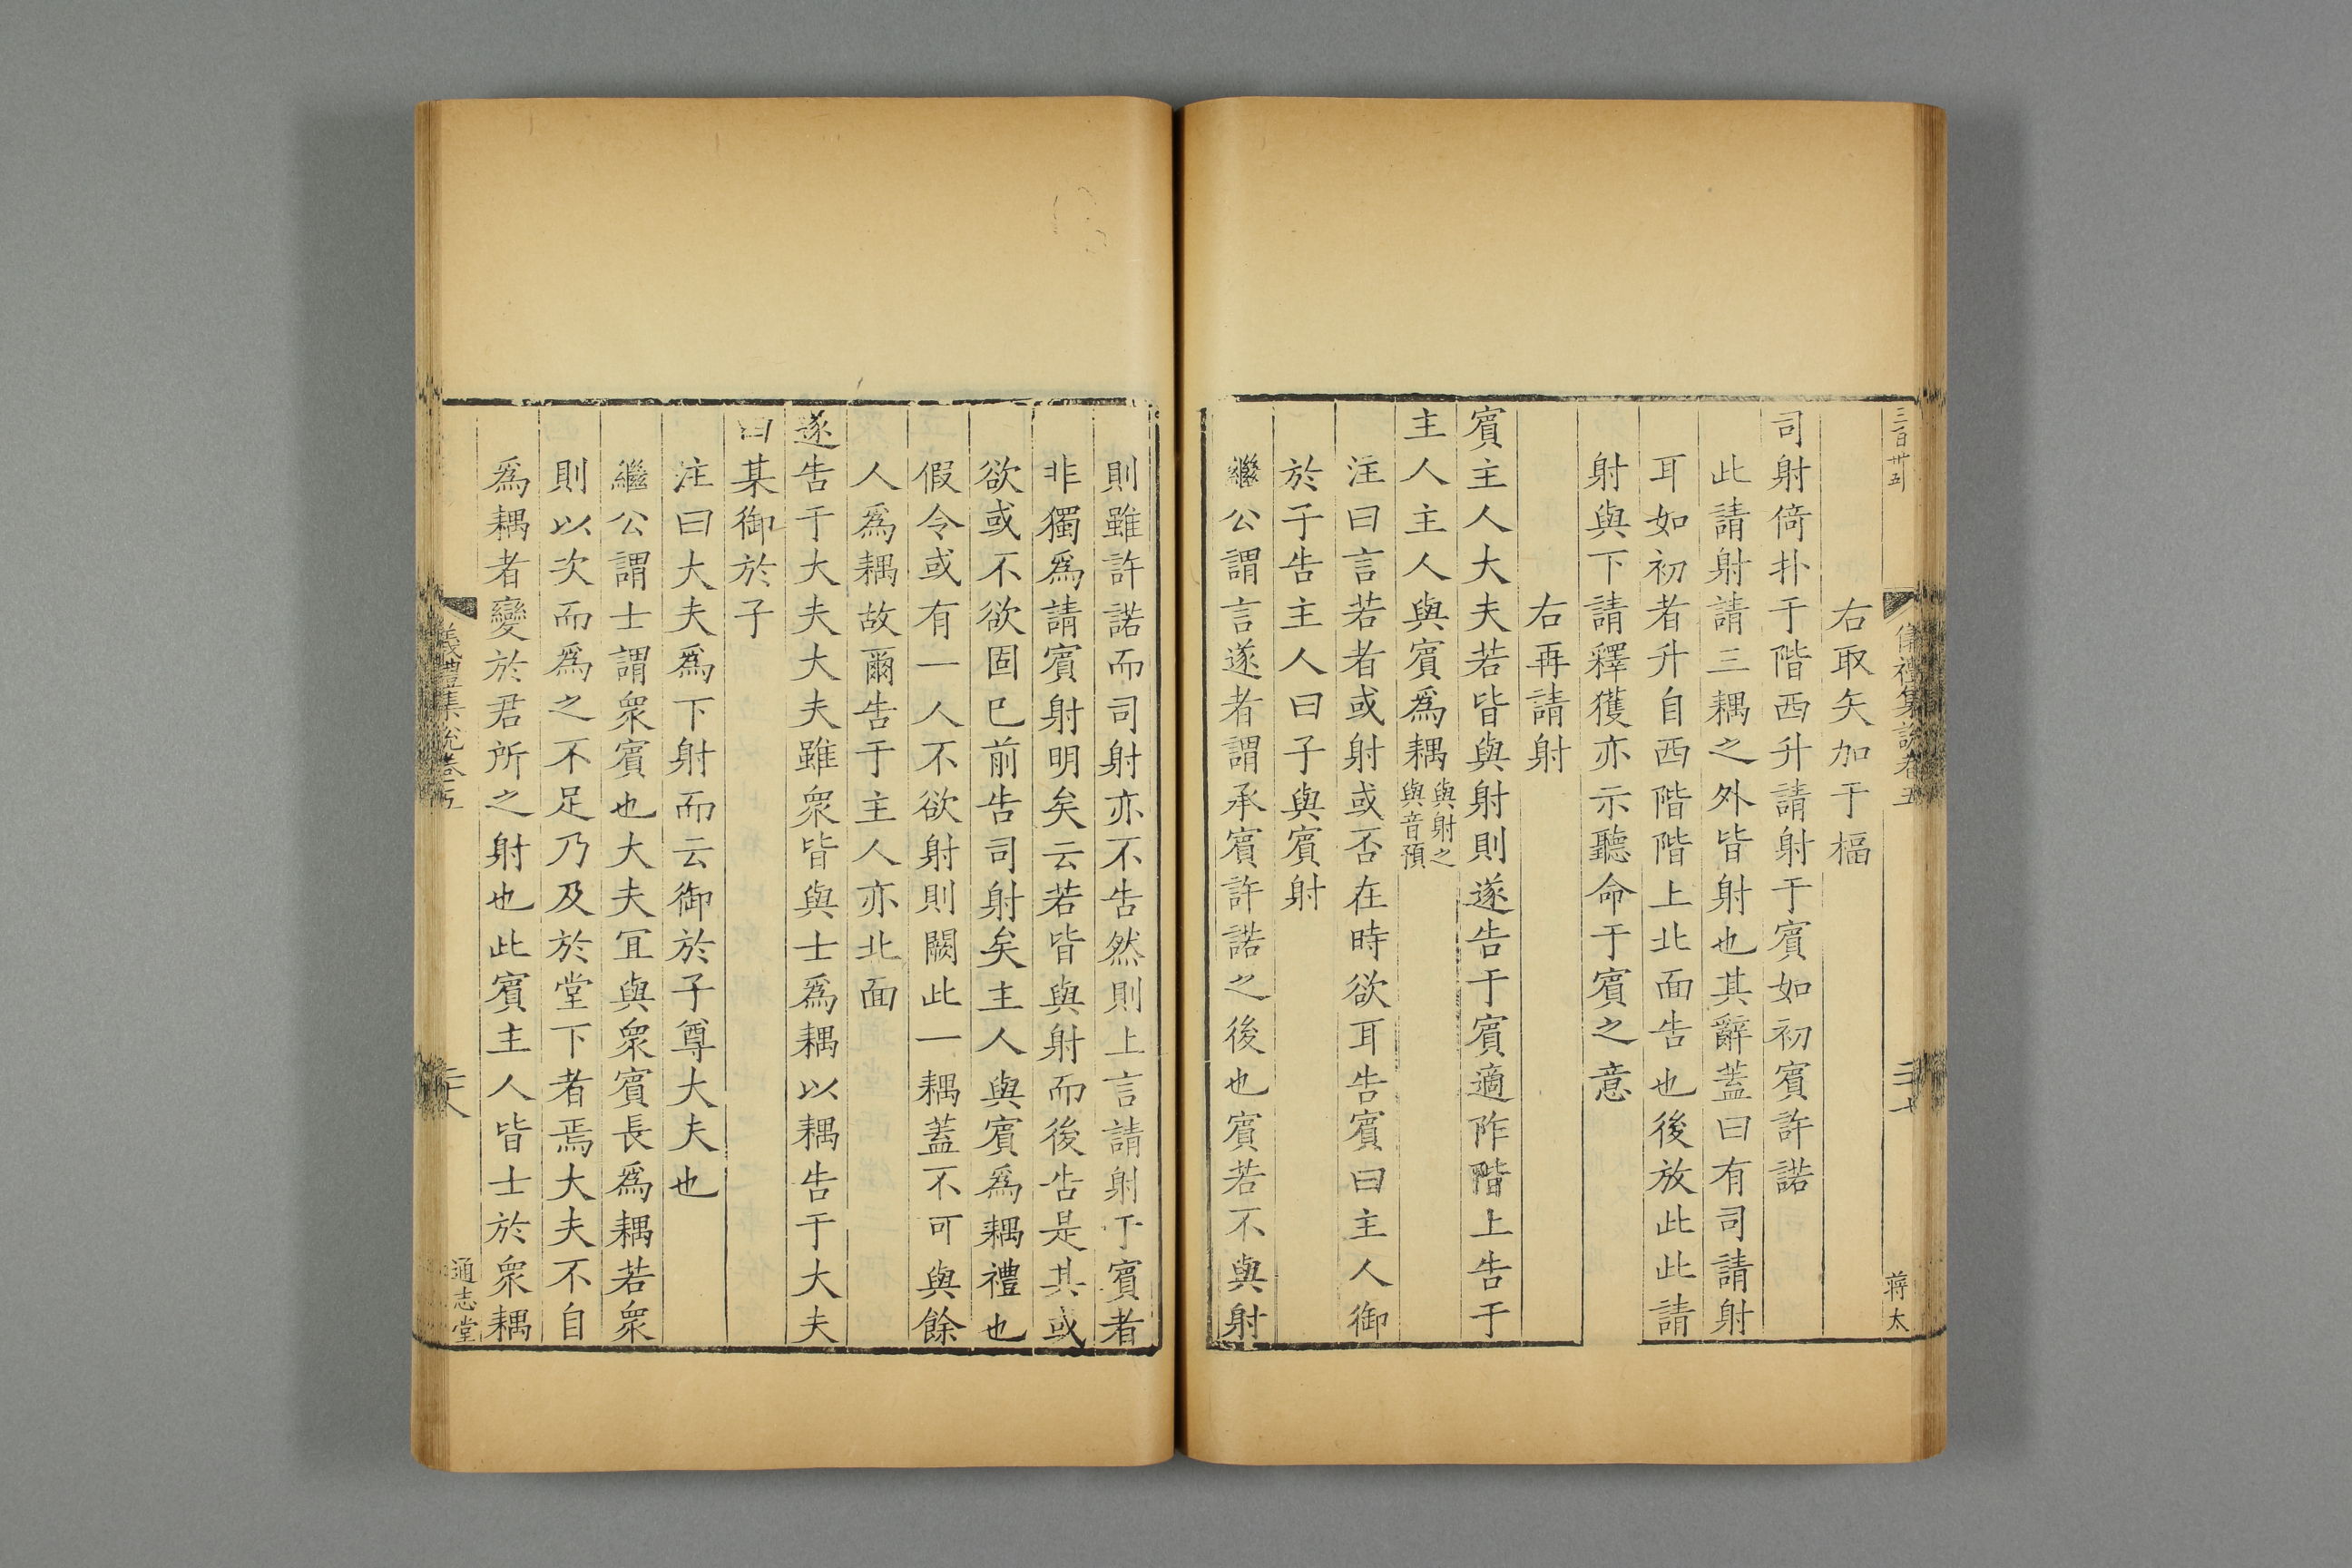 三百卅五
儀禮集說卷五
三十七
蔣太
右取矢加于楅
司射倚扑于階西升請射于賓如初賓許諾
此請射請三耦之外皆射也其辭蓋曰有司請射
耳如初者升自西階階上北面告也後放此此請
射與下請釋獲亦示聽命于賓之意
右再請射
賓主人大夫若皆與射則遂告于賓適阼階上告于
主人主人與賓爲耦與射之與音預
注曰言若者或射或否在時欲耳告賓曰主人御
於子告主人曰子與賓射
繼公謂言遂者謂承賓許諾之後也賓若不與射
則雖許諾而司射亦不告然則上言請射于賓者
非獨爲請賓射明矣云若皆與射而後告是其或
欲或不欲固已前告司射矣主人與賓爲耦禮也
假令或有一人不欲射則闕此一耦蓋不可與餘
人爲耦故爾告于主人亦北面
遂告于大夫大夫雖衆皆與士爲耦以耦告于大夫
曰某御於子
注曰大夫爲下射而云御於子尊大夫也
繼公謂士謂衆賓也大夫冝與衆賓長爲耦若衆
則以次而爲之不足乃及於堂下者焉大夫不自
爲耦者變於君所之射也此賓主人皆士於衆耦
儀禮集說卷五
三十八
通志堂